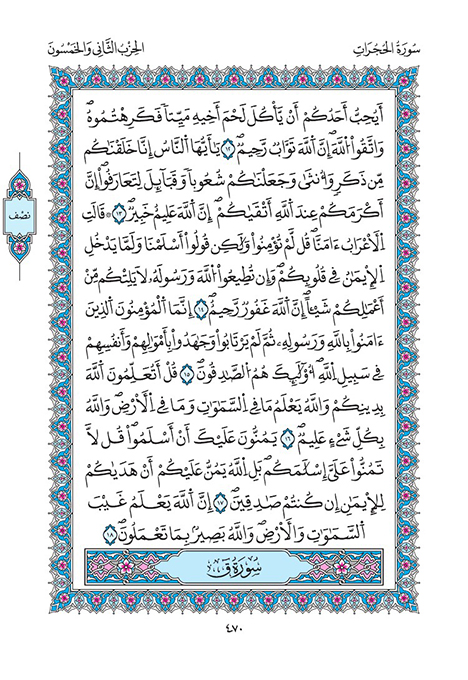 سُورَةُ الحُجُرَاتِ
الحِزْبُ الثَّانِي وَالخَمْسُونَ
نصف
أَيُحِبُّ أَحَدُكُمْ أَنْ يَّأْكُلَ لَحْمَ أَخِيهِ مَيِّتاً فَكَرِهْتُمُوهُۖ
وَاتَّقُواْ اللَّهَۖ إِنَّ اللَّهَ تَوَّابٌ رَّحِيمٌۖ ١٢ يَٰأَيُّهَا النَّاسُ إِنَّا خَلَقْنَٰكُم
مِّن ذَكَرٍ وَأُنثَىٰ وَجَعَلْنَٰكُمْ شُعُوباً وَقَبَآئِلَ لِتَعَارَفُوٓاْۖ إِنَّ
أَكْرَمَكُمْ عِندَ اللَّهِ أَتْقَيٰكُمْۖ إِنَّ اللَّهَ عَلِيمٌ خَبِيرٌۖ ١٣ ۞ قَالَتِ
اِلَاعْرَابُ ءَامَنَّاۖ قُل لَّمْ تُؤْمِنُواْ وَلَٰكِن قُولُوٓاْ أَسْلَمْنَا وَلَمَّا يَدْخُلِ
اِلِايمَٰنُ فِي قُلُوبِكُمْۖ وَإِن تُطِيعُواْ اللَّهَ وَرَسُولَهُۥ لَا يَلِتْكُم مِّنَ
اَعْمَٰلِكُمْ شَيْـٔاًۖ إِنَّ اللَّهَ غَفُورٌ رَّحِيمٌۖ ١٤ إِنَّمَا اَلْمُؤْمِنُونَ اَلذِينَ
ءَامَنُواْ بِاللَّهِ وَرَسُولِهِۦ ثُمَّ لَمْ يَرْتَابُواْ وَجَٰهَدُواْ بِأَمْوَٰلِهِمْ وَأَنفُسِهِمْ
فِي سَبِيلِ اِللَّهِۖ أُوْلَٰٓئِكَ هُمُ اُلصَّٰدِقُونَۖ ١٥ قُلَ اَتُعَلِّمُونَ اَللَّهَ
بِدِينِكُمْ وَاللَّهُ يَعْلَمُ مَا فِي اِلسَّمَٰوَٰتِ وَمَا فِي اِلَارْضِۖ وَاللَّهُ
بِكُلِّ شَيْءٍ عَلِيمٌۖ ١٦ يَمُنُّونَ عَلَيْكَ أَنَ اَسْلَمُواْۖ قُل لَّا
تَمُنُّواْ عَلَيَّ إِسْلَٰمَكُمۖ بَلِ اِللَّهُ يَمُنُّ عَلَيْكُمُۥٓ أَنْ هَدَيٰكُمْ
لِلِايمَٰنِ إِن كُنتُمْ صَٰدِقِينَۖ ١٧ إِنَّ اَللَّهَ يَعْلَمُ غَيْبَ
اَلسَّمَٰوَٰتِ وَالَارْضِۖ وَاللَّهُ بَصِيرٌۢ بِمَا تَعْمَلُونَۖ ١٨
سُورَةُ قٓ
٤٧٠